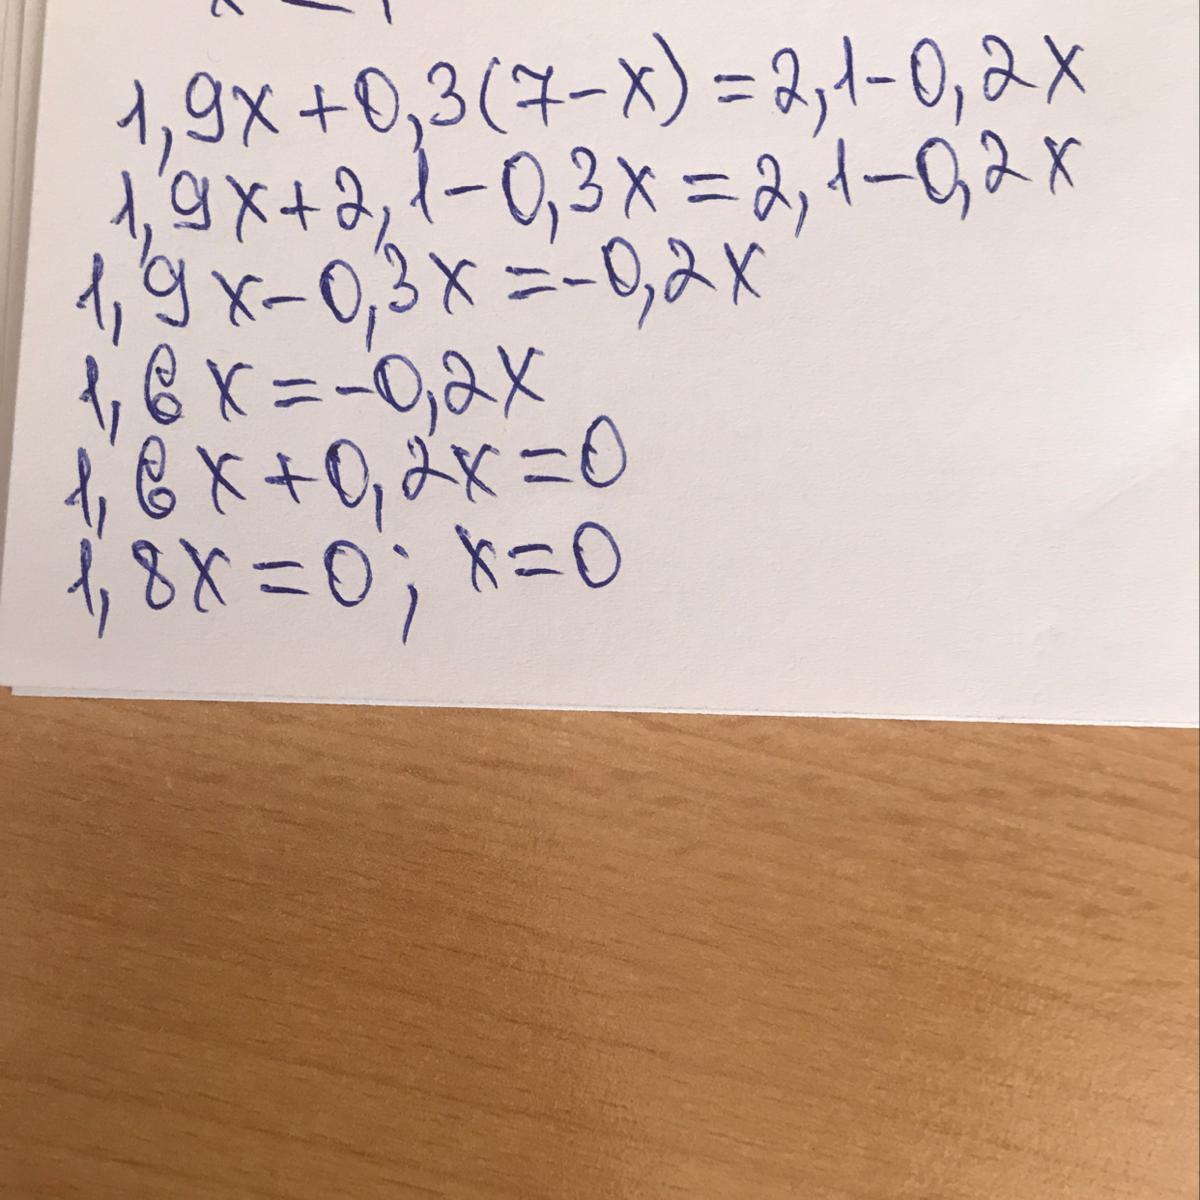 1,9x+0,3(7-x)=2,1-0,2x
1,9x+2,1-0,3x=2,1-0,2x
1,9x-0,3x=-0,2x
1,6x=-0,2x
1,6x+0,2x=0
1,8x=0; x=0